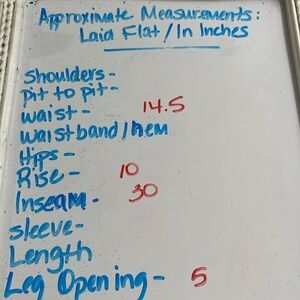 Approximate Measurements:
Laid Flat / In Inches
Shoulders -
Pit to pit -
Waist - 14.5
Waistband / Hem
Hips -
Rise - 10
Inseam - 30
Sleeve -
Length
Leg Opening - 5